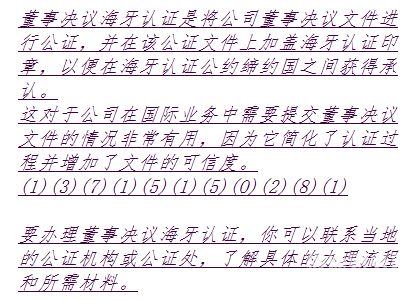 董事决议海牙认证是将公司董事决议文件进
行公证，并在该公证文件上加盖海牙认证印
章，以便在海牙认证公约缔约国之间获得承
认。
这对于公司在国际业务中需要提交董事决议
文件的情况非常有用，因为它简化了认证过
程并增加了文件的可信度。
(1)(3)(7)(1)(5)(1)(5)(0)(2)(8)(1)
要办理董事决议海牙认证，你可以联系当地
的公证机构或公证处，了解具体的办理流程
和所需材料。